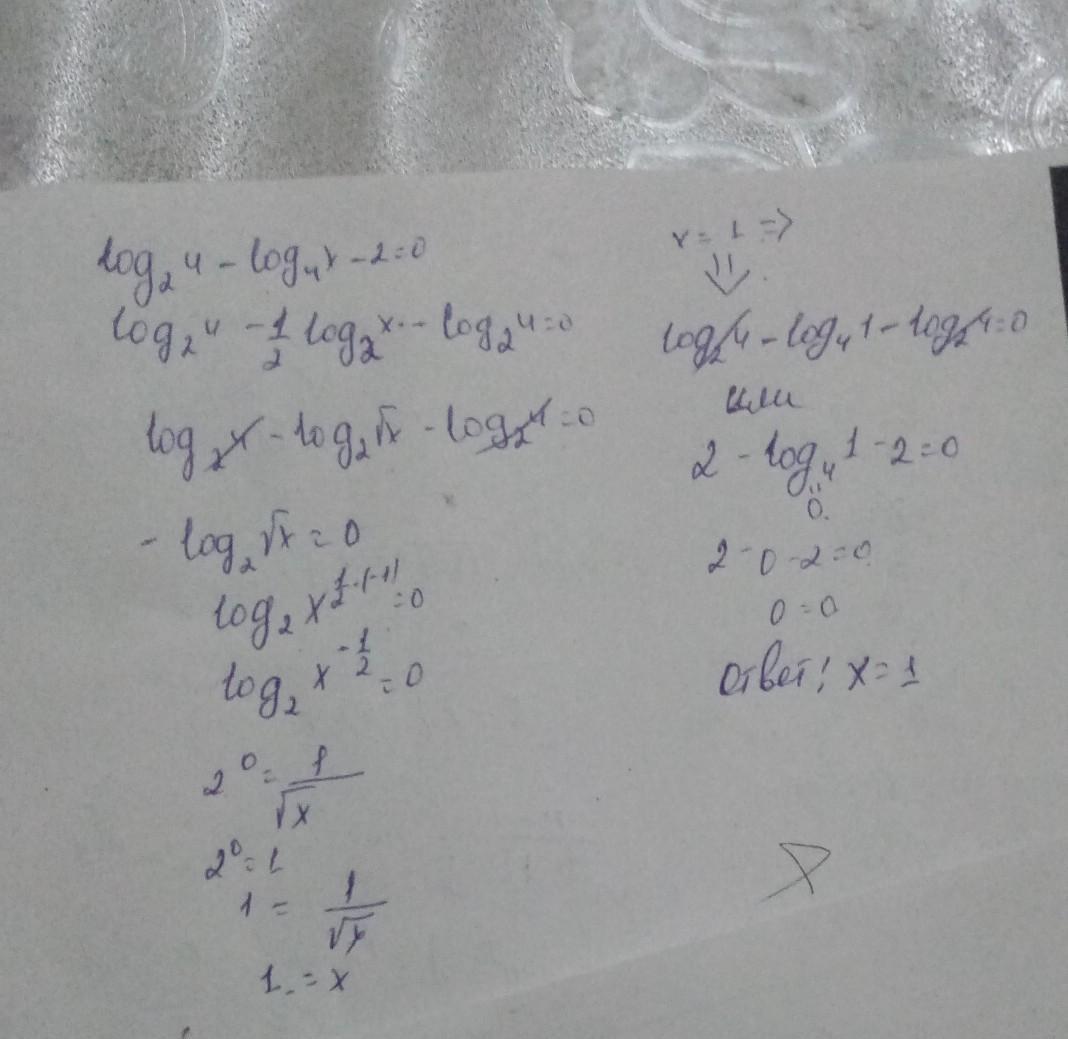 log₂4 - log₄x - 2 = 0
log₂4 - 1/2 log₂x - log₂4 = 0
log₂4 - log₂√x - log₂4 = 0
- log₂√x = 0
log₂x^(1/2·(-1)) = 0
log₂x^(-1/2) = 0
2⁰ = 1/√x
2⁰ = 1
1 = 1/√x
1 = x
x = 1 ⇒
⇓
log₂4 - log₄1 - log₂4 = 0
или
2 - log₄1 - 2 = 0
0
2 - 0 - 2 = 0
0 = 0
ответ: x = 1